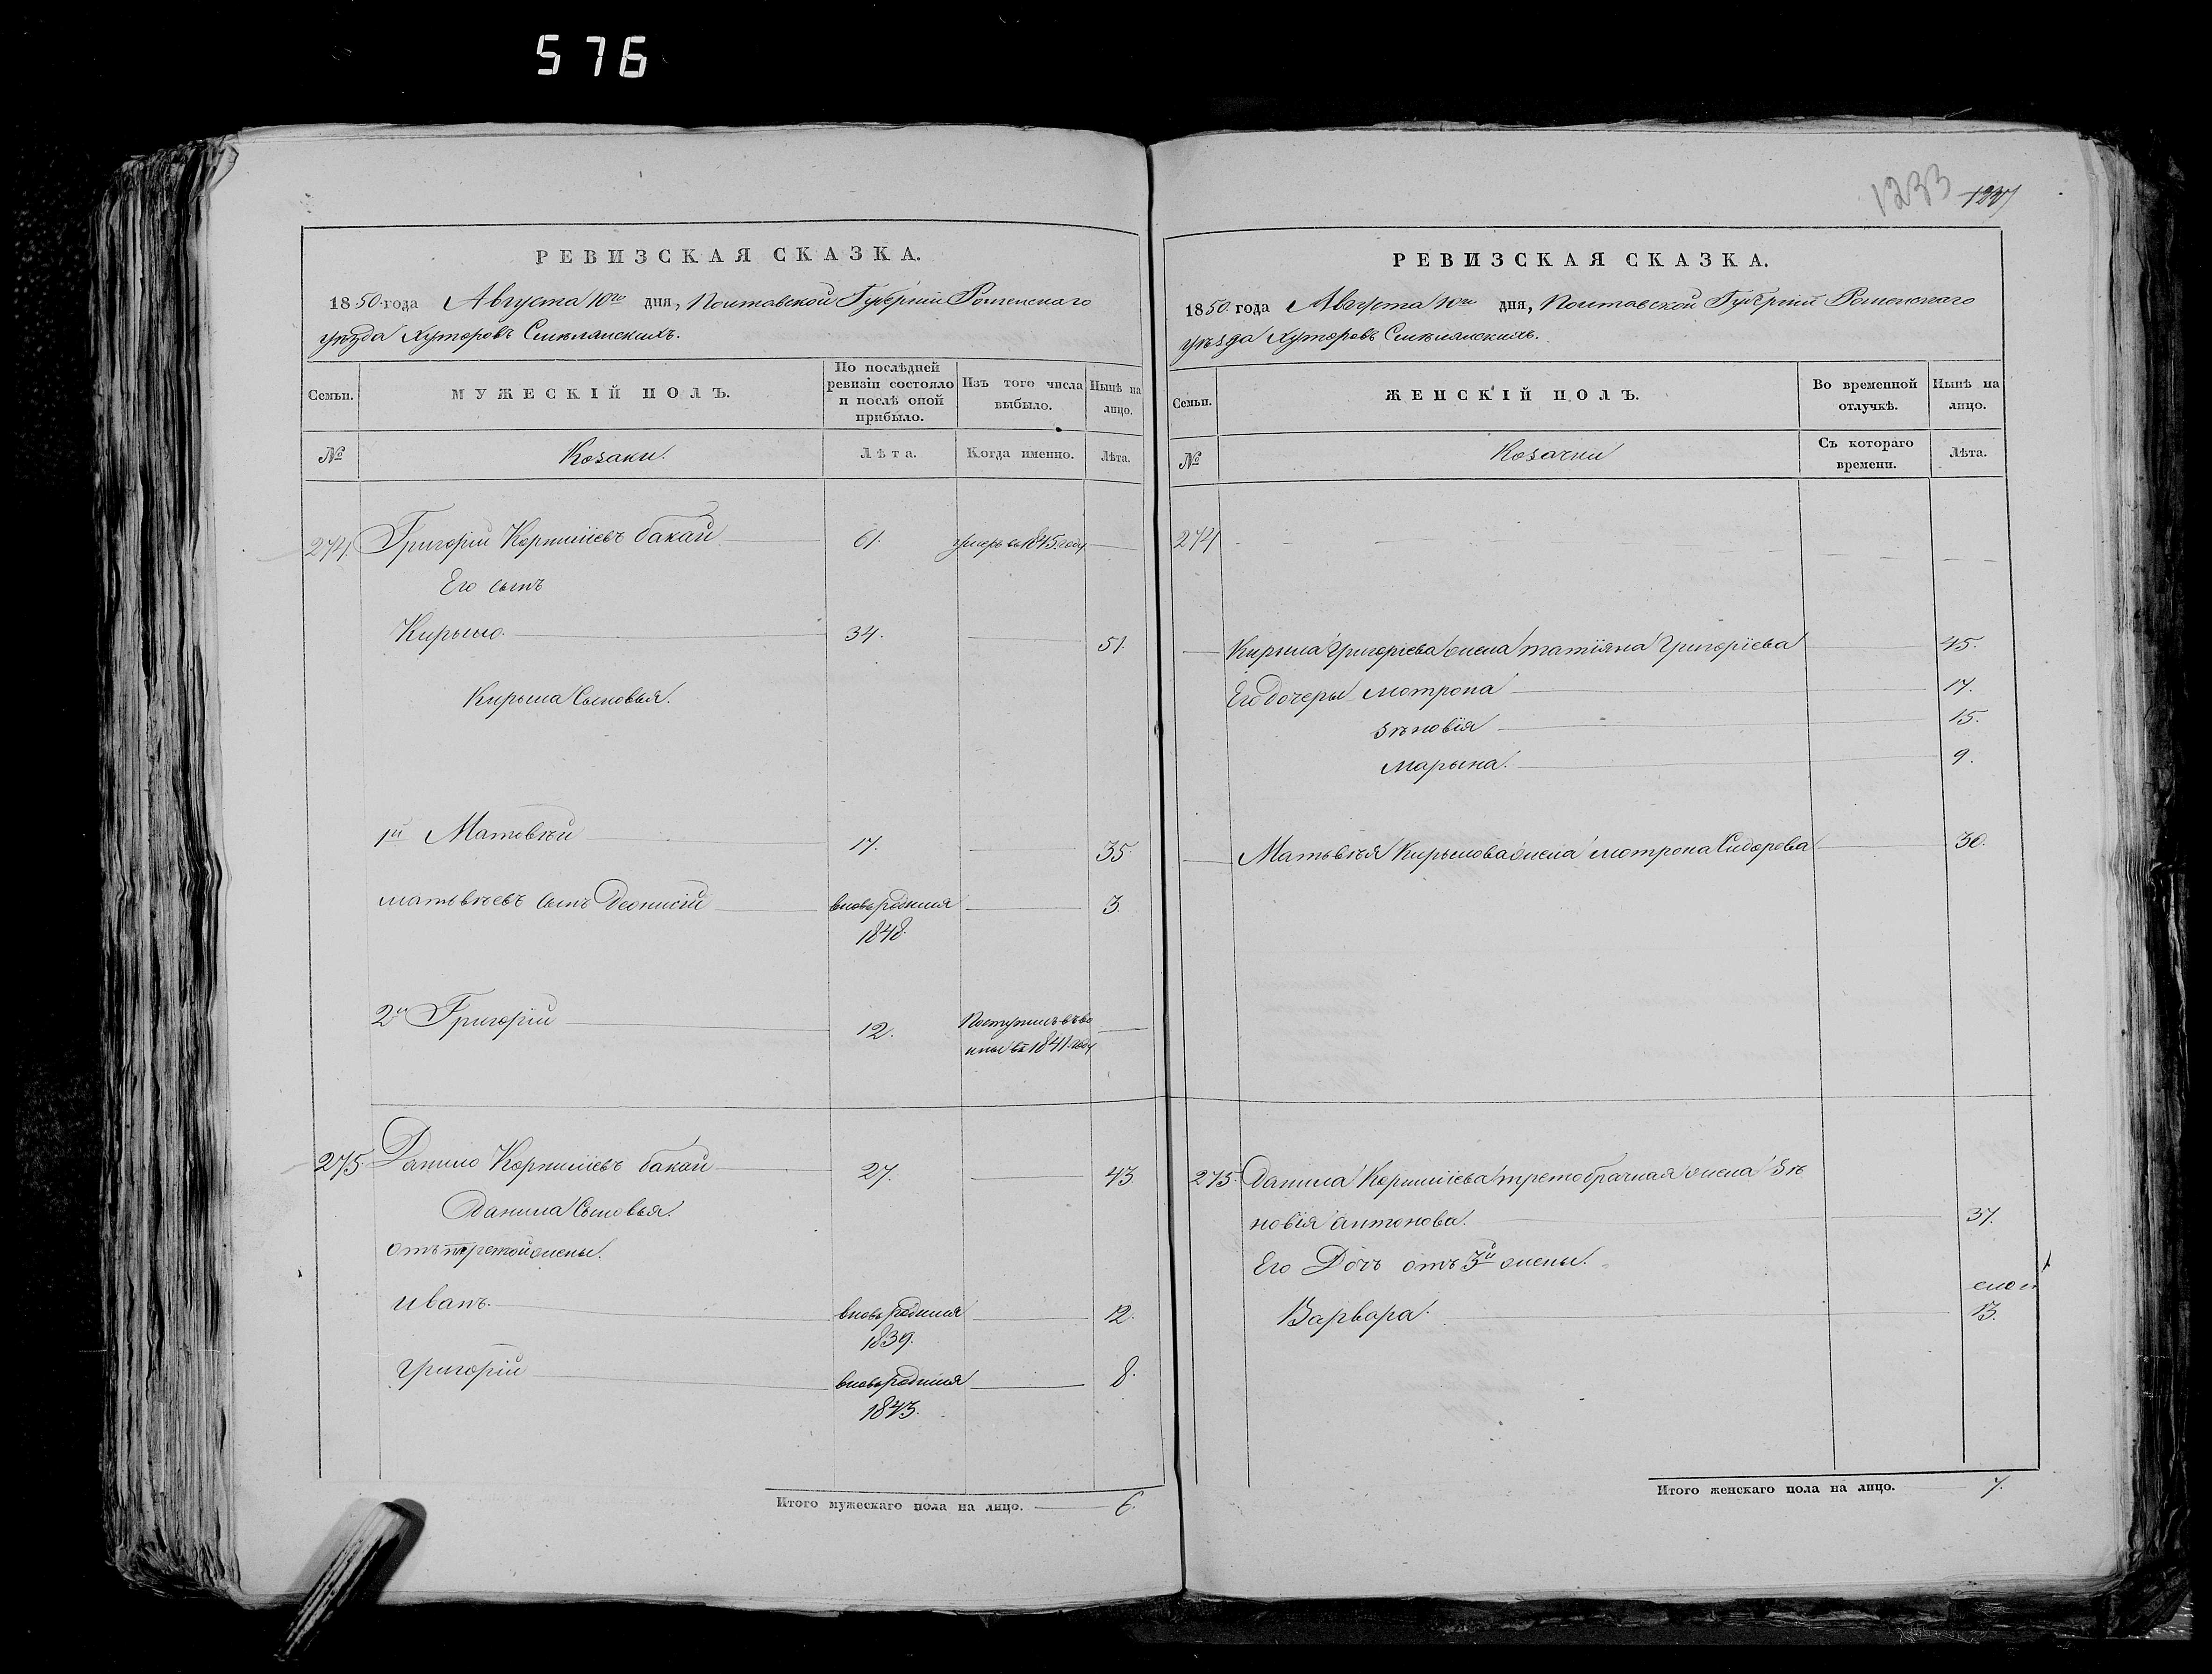 576
1233 1237
РЕВИЗСКАЯ СКАЗКА.
1850 года Августа 10го дня, Полтавской Губерніи Роменскаго
уѣзда Хуторовъ Смѣлянскихъ.
Семьи.
МУЖЕСКІЙ ПОЛЪ.
По послѣдней
ревизіи состояло
и послѣ оной
прибыло.
Изъ того числа
выбыло.
Нынѣ на
лицо.
№
Козаки.
Лѣта.
Когда именно.
Лѣта.
274. Григорій Корніиевъ бакай 61. умеръ въ 1845 году
Его сынъ
Кирыло. 34. 51.
Кирыла Сыновья.
1й Матвѣй 17. 35.
матьвѣевъ сынъ Деонисій вновьродился 3.
1848.
2й Григорій 12. Поступилъ въ во
ины въ 1841 году
275. Данило Корніиевъ бакай 27. 43.
Данила Сыновья.
отъ третой жены.
Иванъ. вновьродился 12.
1839.
григорій вновьродился 8.
1843.
Итого мужескаго пола на лицо. 6.
РЕВИЗСКАЯ СКАЗКА.
1850 года Августа 10го дня, Полтавской Губерніи Роменскаго
уѣзда Хуторовъ Смѣлянскихъ.
Семьи.
ЖЕНСКІЙ ПОЛЪ.
Во временной
отлучкѣ.
Нынѣ на
лицо.
№
Козачки
Съ котораго
времени.
Лѣта.
274
Кирыла Григоріева жена татіяна Григоріева 45.
Его дочеры мотрона 17.
Зѣновія 15.
Марына. 9.
Матьвѣя Кирылова жена мотрона Сидорова 30.
275. Данила Корніиева третобрачная жена Зѣ
новія антонова. 37.
Его Дочъ отъ 3й жены.
Варвара. 13.
Итого женскаго пола на лицо. 7.